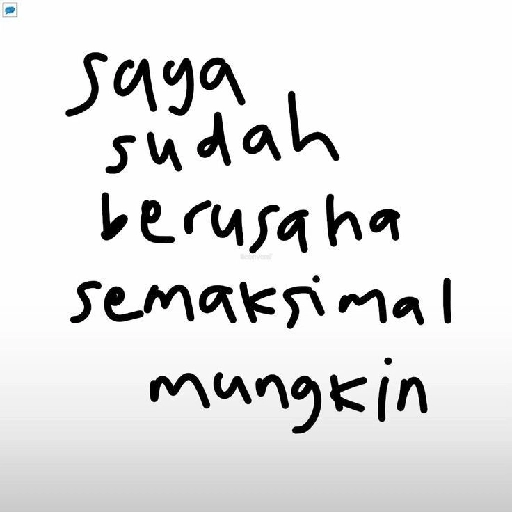 saya
sudah
berusaha
semaksimal
mungkin